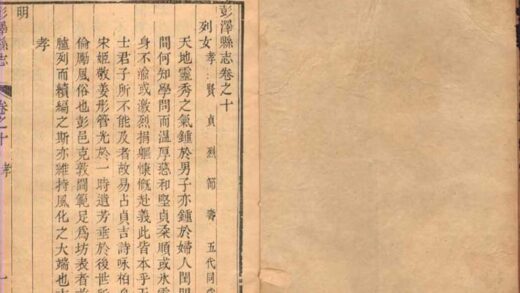 彭澤縣志卷之十
列女 孝 賢 貞 烈 節 壽 五代同
天地靈秀之氣鍾於男子亦鍾於婦人閨
間何知學問而溫厚慈和堅貞柔順或氷
身不渝或激烈捐軀慷慨赴義此皆本乎
士君子所不能及者故易占貞吉詩咏柏
宋姬敬姜彤管光於一時遺芳垂於後世
倫勵風俗也彭邑克敦閫範足爲坊表者
臚列而續編之斯亦維持風化之大端也
孝
明
彭澤縣志
卷之十
孝
一